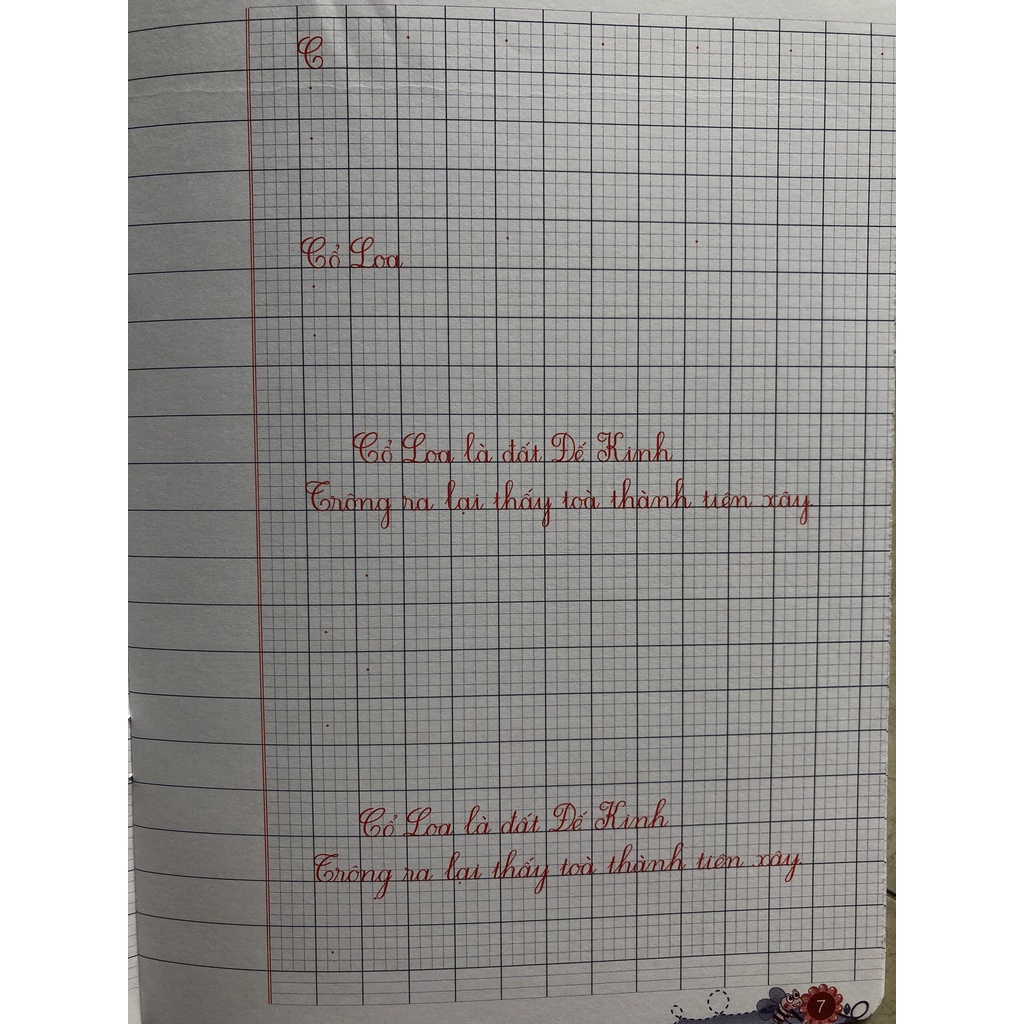 C
Cổ Loa
Cổ Loa là đất Đế Kinh
Trông ra lại thấy toà thành tiên xây.
Cổ Loa là đất Đế Kinh
Trông ra lại thấy toà thành tiên xây.
7